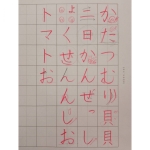 かたつむり貝貝
三日かんぜっし
くせんんじお
トマトお